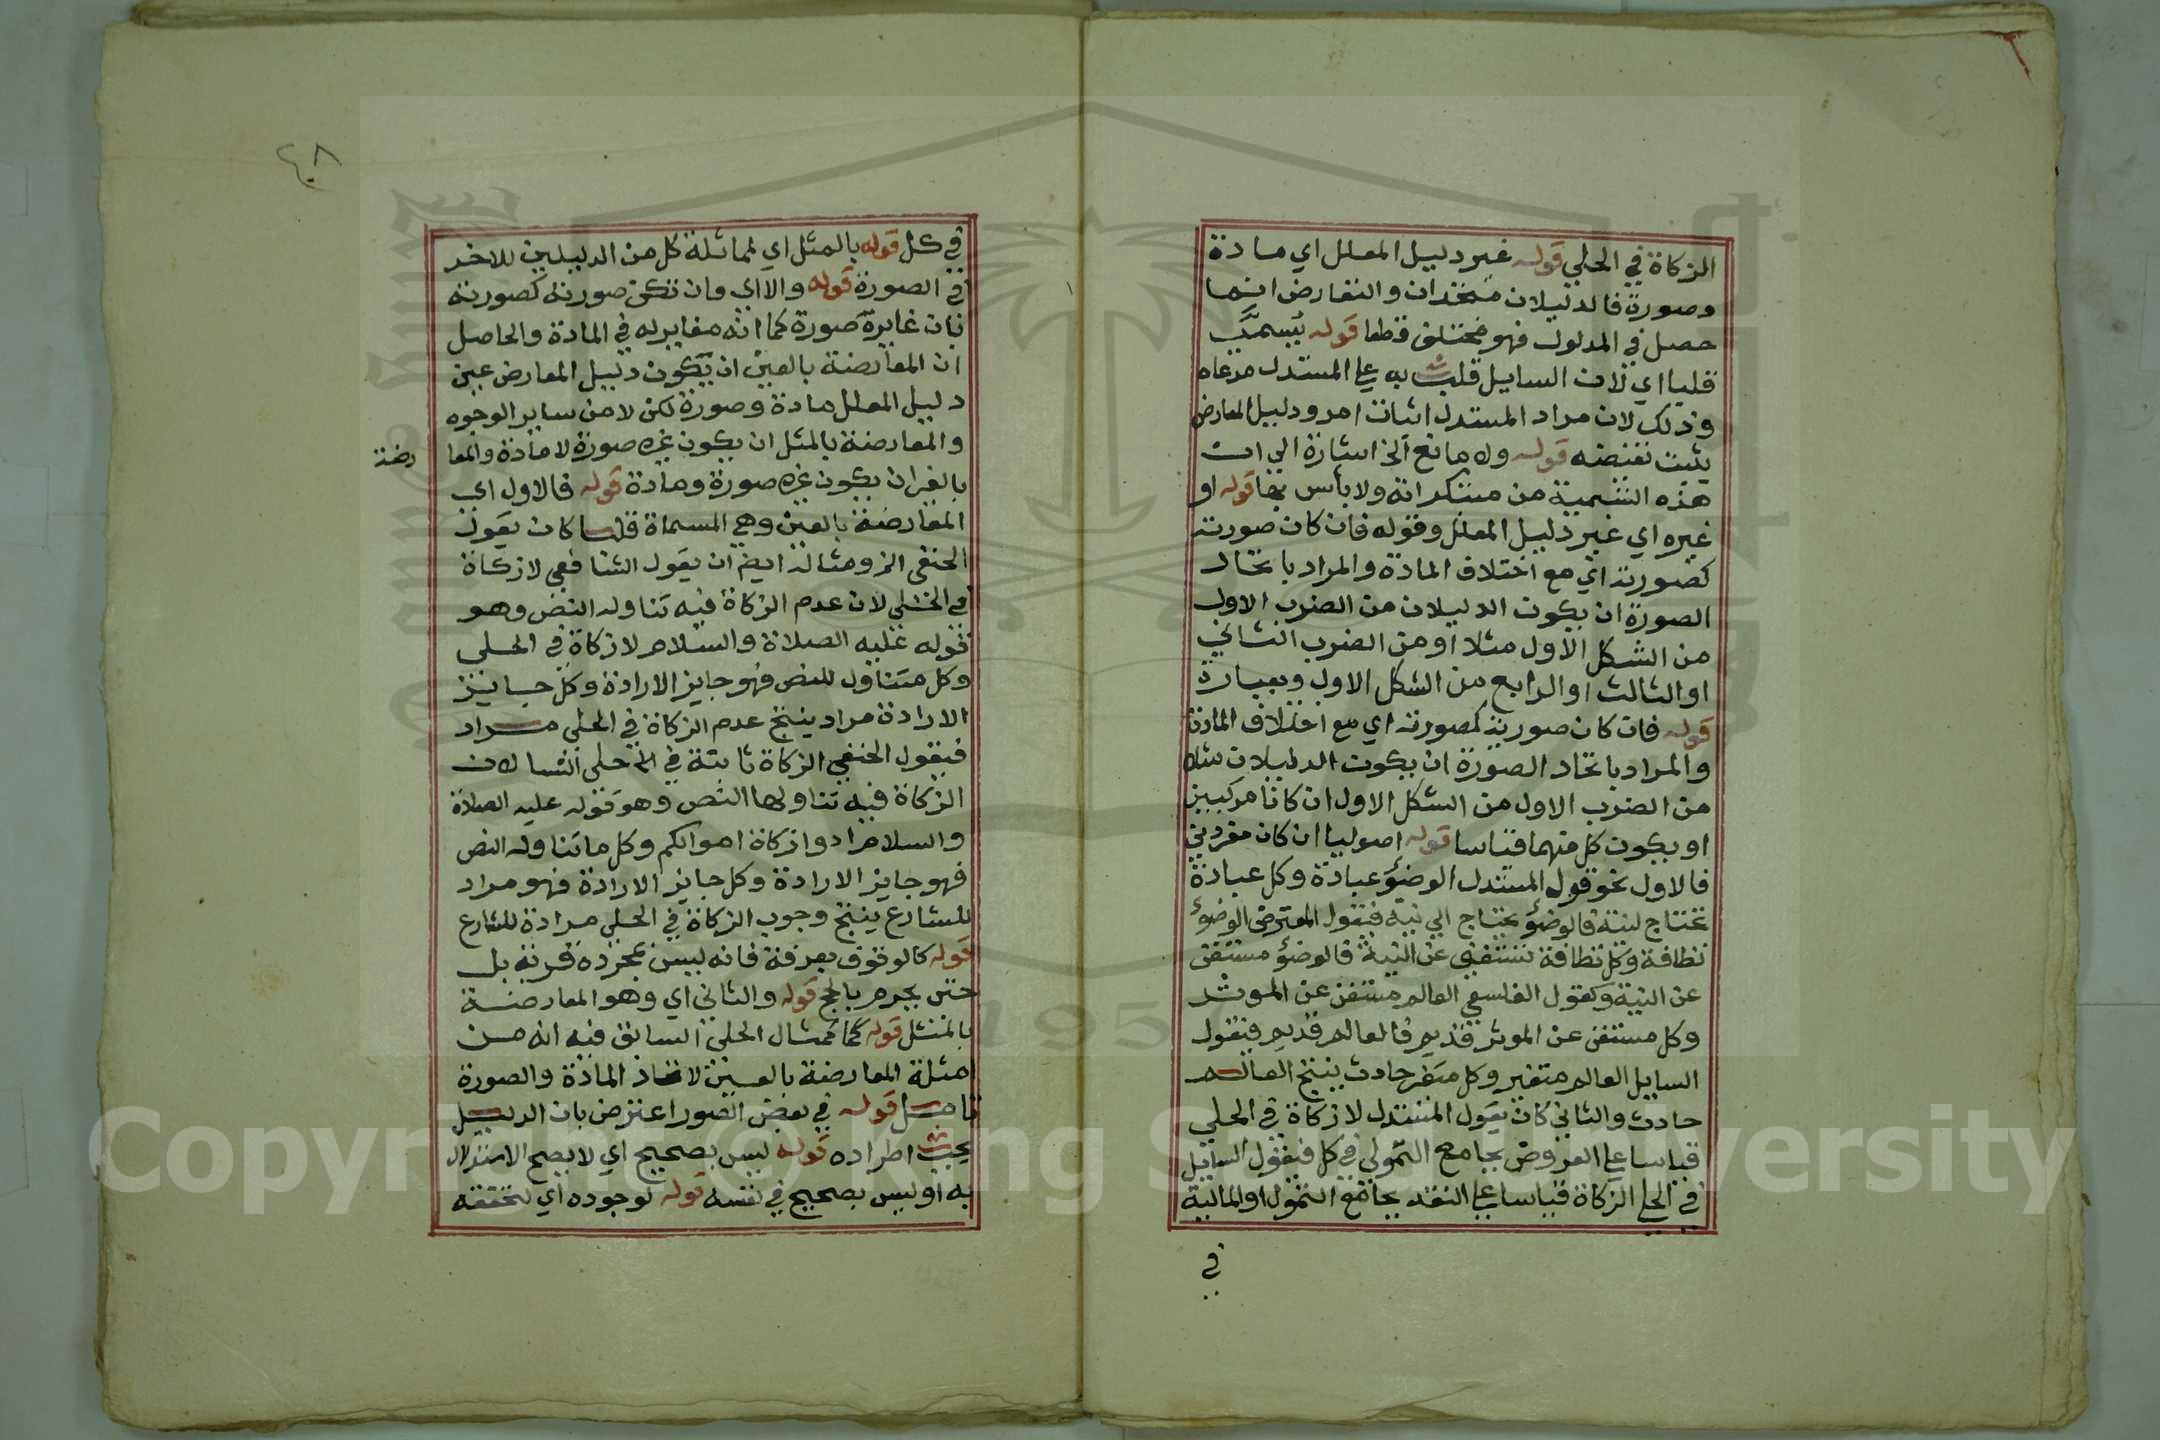 الزكاة في الحلي قوله غير دليل المعلل اي مادة
وصورة فالدليلان متحدان والتعارض انما
حصل في المدلول فهو مختلف قطعا قوله يسمى
قلبا اي لان السايل قلب به على المستدل مدعاه
وذلك لان مراد المستدل اثبات امر ودليل المعارض
يثبت نقيضه قوله ولا مانع الخ اشارة الي ان
هذه التسمية من مبتكراته ولا بأس بها قوله او
غيره اي غير دليل المعلل وقوله فان كان صورته
كصورته اي مع اختلاف المادة والمراد باتحاد
الصورة ان يكون الدليلان من الضرب الاول
من الشكل الاول مثلا او من الضرب الثاني
او الثالث او الرابع من الشكل الاول وبعبارة
قوله فان كان صورته كصورته اي مع اختلاف المادة
والمراد باتحاد الصورة ان يكون الدليلان مثلا
من الضرب الاول من الشكل الاول ان كانا مركبين
او يكون كل منهما قياسا قوله اصوليا ان كان مفردين
فالاول نحو قول المستدل الوضؤ عبادة وكل عبادة
تحتاج لنية فالوضؤ يحتاج الي نية فيقول المعترض الوضؤ
نظافة وكل نظافة تستغني عن النية فالوضؤ مستغن
عن النية وكقول الفلسفي العالم مستغن عن الموثر
وكل مستغن عن الموثر قديم فالعالم قديم فيقول
السايل العالم متغير وكل متغير حادث ينتج العالم
حادث والثاني كان يقول المستدل لا زكاة في الحلي
قياسا على العروض بجامع التمولي في كل فيقول السايل
في الحلي الزكاة قياسا على النقد بجامع التمول او المالية
في
٤٨
في كل قوله بالمثل اي لمماثلة كل من الدليلين للاخر
في الصورة قوله والا اي وان تكن صورته كصورته
بان غايره صورة كما انه مغاير له في المادة والحاصل
ان المعارضة بالعين ان يكون دليل المعارض عين
دليل المعلل مادة وصورة لكن لا من ساير الوجوه
والمعارضة بالمثل ان يكون غيره صورة لا مادة والمعا
رضة
بالغير ان يكون غيره صورة ومادة قوله فالاول اي
المعارضة بالعين وهي المسماة قلبا كان يقول
الحنفي الخ ومثاله ايضا ان يقول الشافعي لا زكاة
في الحلي لان عدم الزكاة فيه تناوله النص وهو
قوله عليه الصلاة والسلام لا زكاة في الحلي
وكل متناول للنص فهو جايز الارادة وكل جايز
الارادة مراد ينتج عدم الزكاة في الحلي مراد
فيقول الحنفي الزكاة ثابتة في حلي النسا لان
الزكاة فيه تناولها النص وهو قوله عليه الصلاة
والسلام ادوا زكاة اموالكم وكل ما تناوله النص
فهو جايز الارادة وكل جايز الارادة فهو مراد
للشارع ينتج وجوب الزكاة في الحلي مرادة للشارع
قوله كالوقوف بعرفة فانه ليس بمجرده قربة بل
حتى يحرم بالحج قوله والثاني اي وهو المعارضة
بالمثل قوله كما كمثال الحلي السابق فيه انه من
امثلة المعارضة بالعين لاتحاد المادة والصورة
تامل قوله في بعض الصور اعترض بان الدليل
يجب اطراده قوله ليس بصحيح اي لا يصح الاستدلال
به او ليس بصحيح في نفسه قوله لوجوده اي لتحققه
Copyright © King Saud University
1957